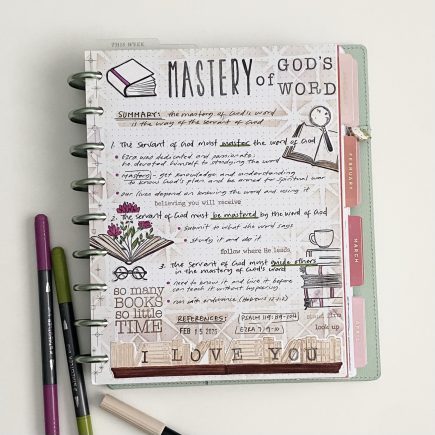 THIS WEEK
MASTERY of GOD'S
WORD
SUMMARY: the mastery of God's word
is the way of the servant of God
1. The servant of God must master the word of God
Ezra was dedicated and passionate,
he devoted himself to studying the word
mastery - get knowledge and understanding
to know God's plan and be armed for spiritual war
Our lives depend on knowing the word and using it
believing you will receive
2. The servant of God must be mastered by the word of God
submit to what the word says
study it and do it
follow where He leads
3. The servant of God must guide others
in the mastery of God's word
need to know it and live it before
can teach it without hypocrisy
run with endurance (Hebrews 12:1-2)
so many
BOOKS
so little
TIME
REFERENCES:
PSALM 119:89-104
EZRA 7:9-10
FEB 15 2025
look up
I LOVE YOU
FEBRUARY
MARCH
APRIL